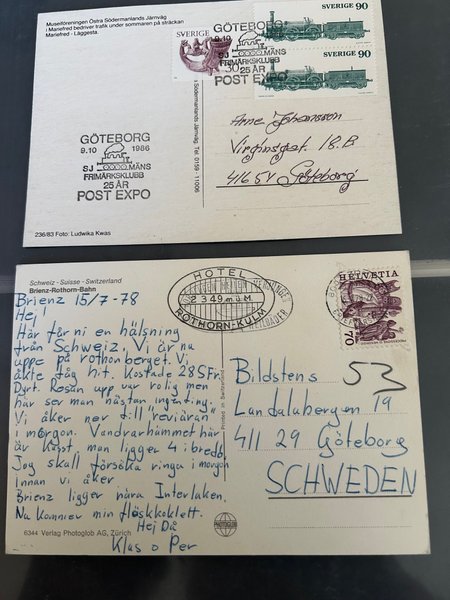 Museiföreningen Östra Södermanlands Järnväg
i Mariefred bedriver trafik under sommaren på sträckan
Mariefred - Läggesta.
GÖTEBORG
9.10
SJ MÄNS
FRIMÄRKSKLUBB
25 ÅR
POST EXPO
SVERIGE
SVERIGE 90
SVERIGE 90
GÖTEBORG
9.10 1986
SJ MÄNS
FRIMÄRKSKLUBB
25 ÅR
POST EXPO
Södermanlands Järnväg, Tel 0159
Arne Johansson
Virginsgat. 18.B
41654 Göteborg
236/83 Foto: Ludwika Kwas
Schweiz - Suisse - Switzerland
Brienz-Rothorn-Bahn
Brienz 15/7 -78
Hej!
Här får ni en hälsning
från Schweiz. Vi är nu
uppe på rothornberget. Vi
åkte tåg hit. Kostade 28 SFr
Dyrt. Resan upp var rolig men
här ser man nästan ingenting.
Vi åker ner till "revieran"
i morgon. Vandrarhämmet här
är kasst man ligger 4 i bredd
Jog skall försöka ringa i morgon
innan vi åker.
Brienz ligger nära Interlaken.
Nu kommer min fläskkotlett.
Hej Då
Klas o Per
6344 Verlag Photoglob AG, Zürich
HOTEL
2349 m.ü.M.
ROTHORN-KULM
HELVETIA
70
Printed in Switzerland
PHOTOGLOB
53
Bildstens
Landalabergen 19
411 29 Göteborg
SCHWEDEN